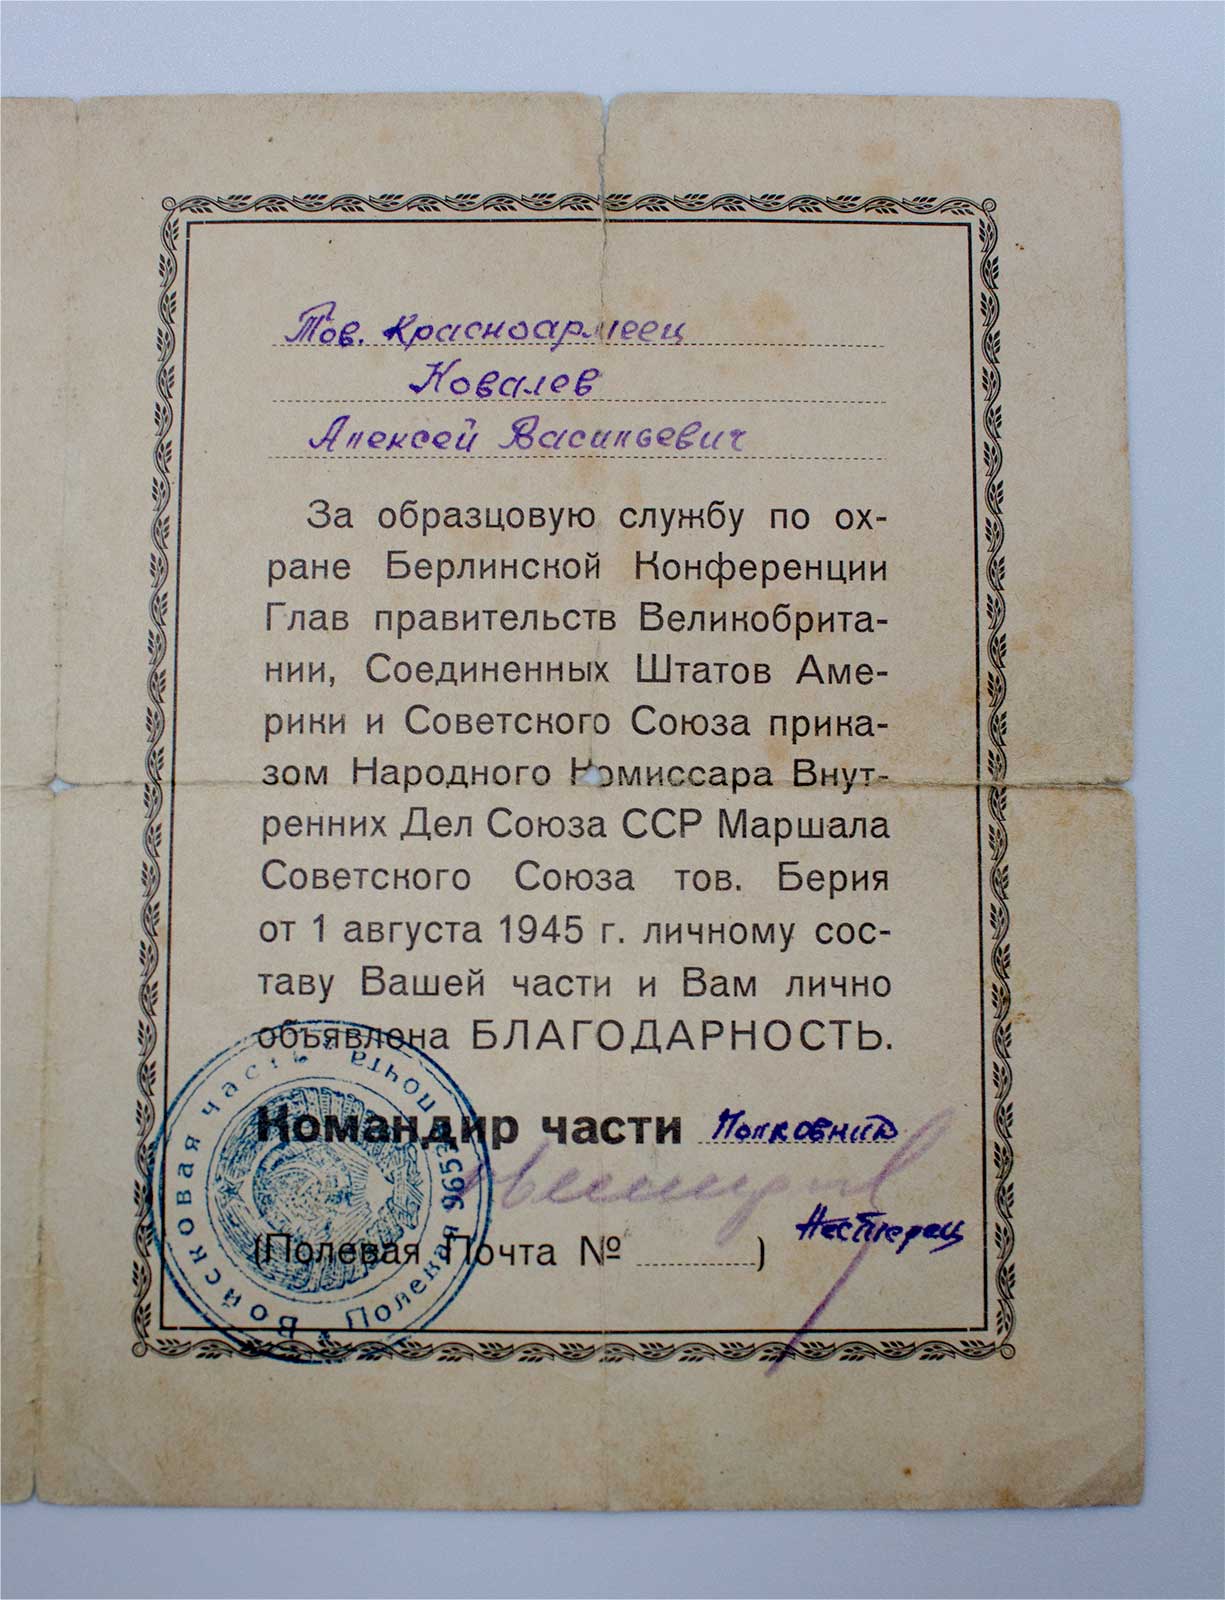 Тов. Красноармеец
Ковалев
Алексей Васильевич
За образцовую службу по ох-
ране Берлинской Конференции
Глав правительств Великобрита-
нии, Соединенных Штатов Аме-
рики и Советского Союза прика-
зом Народного Комиссара Внут-
ренних Дел Союза ССР Маршала
Советского Союза тов. Берия
от 1 августа 1945 г. личному сос-
таву Вашей части и Вам лично
объявлена БЛАГОДАРНОСТЬ.
Командир части Полковник
Нестерец
(Полевая Почта №)
Войсковая часть
Полевая почта